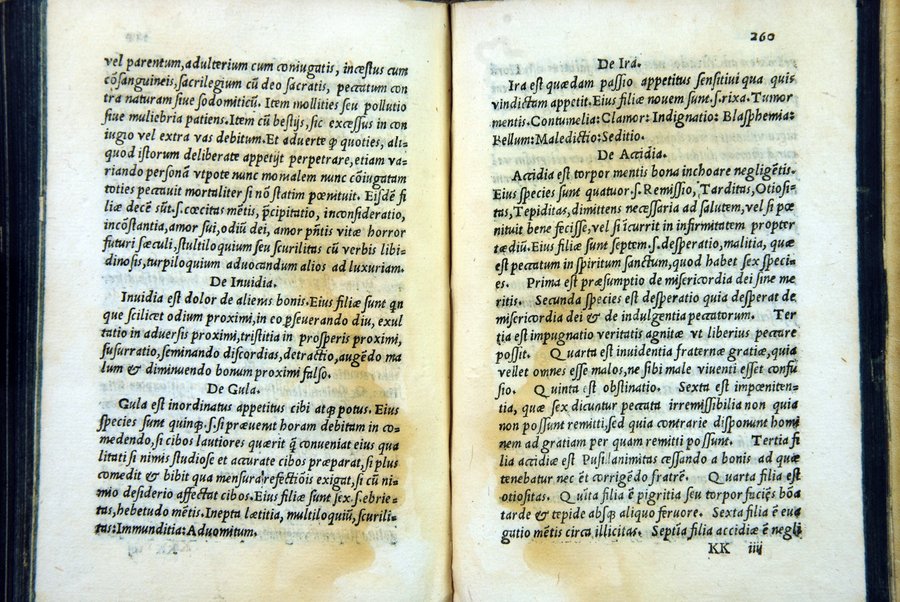 vel parentum, adulterium cum coniugatis, incęstus cum
cōsanguineis, sacrilegium cū deo sacratis, peccatum con
tra naturam siue sodomiticū. Item mollities seu pollutio
siue muliebria patiens. Item cū bestijs, sic excessus in con
iugio vel extra vas debitum. Et aduerte ꝙ quoties, ali-
quod istorum deliberate appetijt perpetrare, etiam va-
riando personā vtpote nunc monialem nunc cōiugatam
toties peccauit mortaliter si nō statim pœnituit. Eisdē fi
liæ decē sūt .s. cœcitas mētis, p̄cipitatio, inconsideratio,
incōstantia, amor sui, odiū dei, amor p̄ntis vitæ horror
futuri sæculi, stultiloquium seu scurilitas cū verbis libi-
dinosis, turpiloquium aduocandum alios ad luxuriam.
De Inuidia.
Inuidia est dolor de alienis bonis. Eius filiæ sunt qn
que scilicet odium proximi, in eo ꝑseuerando diu, exul
tatio in aduersis proximi, tristitia in prosperis proximi,
susurratio, seminando discordias, detractio, augēdo ma
lum & diminuendo bonum proximi falso.
De Gula.
Gula est inordinatus appetitus cibi atqꝫ potus. Eius
species sunt quinqꝫ .s. si præuenit horam debitam in co-
medendo, si cibos lautiores quærit q̄ conueniat eius qua
litati si nimis studiose et accurate cibos præparat, si plus
comedit & bibit qua mensura refectiōis exigat, si cū ni-
mio desiderio affectat cibos. Eius filiæ sunt sex .s. ebrie-
tas, hebetudo mētis. Inepta lætitia, multiloquiū, scurili-
tas: Immunditia: Aduomitum.
260
De Ira.
Ira est quædam passio appetitus sensitiui qua quis
vindictam appetit. Eius filiæ nouem sunt .s. rixa. Tumor
mentis. Contumelia: Clamor: Indignatio: Blasphemia:
Bellum: Maledictio: Seditio.
De Accidia.
Accidia est torpor mentis bona inchoare negligētis.
Eius species sunt quatuor .s. Remissio, Tarditas, Otiosi-
tas, Tepiditas, dimittens necessaria ad salutem, vel si pœ
nituit bene fecisse, vel si īcurrit in infirmitatem propter
tædiū. Eius filiæ sunt septem .s. desperatio, malitia, quæ
est peccatum in spiritum sanctum, quod habet sex speci-
es. Prima est præsumptio de misericordia dei sine me
ritis. Secunda species est desperatio quia desperat de
misericordia dei & de indulgentia peccatorum. Ter
tia est impugnatio veritatis agnitæ vt liberius peccare
possit. Quarta est inuidentia fraternæ gratiæ, quia
vellet omnes esse malos, ne sibi male viuenti esset confu
sio. Quinta est obstinatio. Sexta est impœniten-
tia, quæ sex dicuntur peccata irremissibilia non quia
non possunt remitti, sed quia contrarie disponunt homi
nem ad gratiam per quam remitti possunt. Tertia fi
lia accidiæ est Pusillanimitas cessando a bonis ad quæ
tenebatur nec ēt corrigēdo fratrē. Quarta filia est
otiositas. Quīta filia ē pigritia seu torpor faciēs bōa
tarde & tepide absqꝫ aliquo feruore. Sexta filia ē eua
gatio mētis circa illicitas. Septīa filia accidiæ ē negli
KK iiij